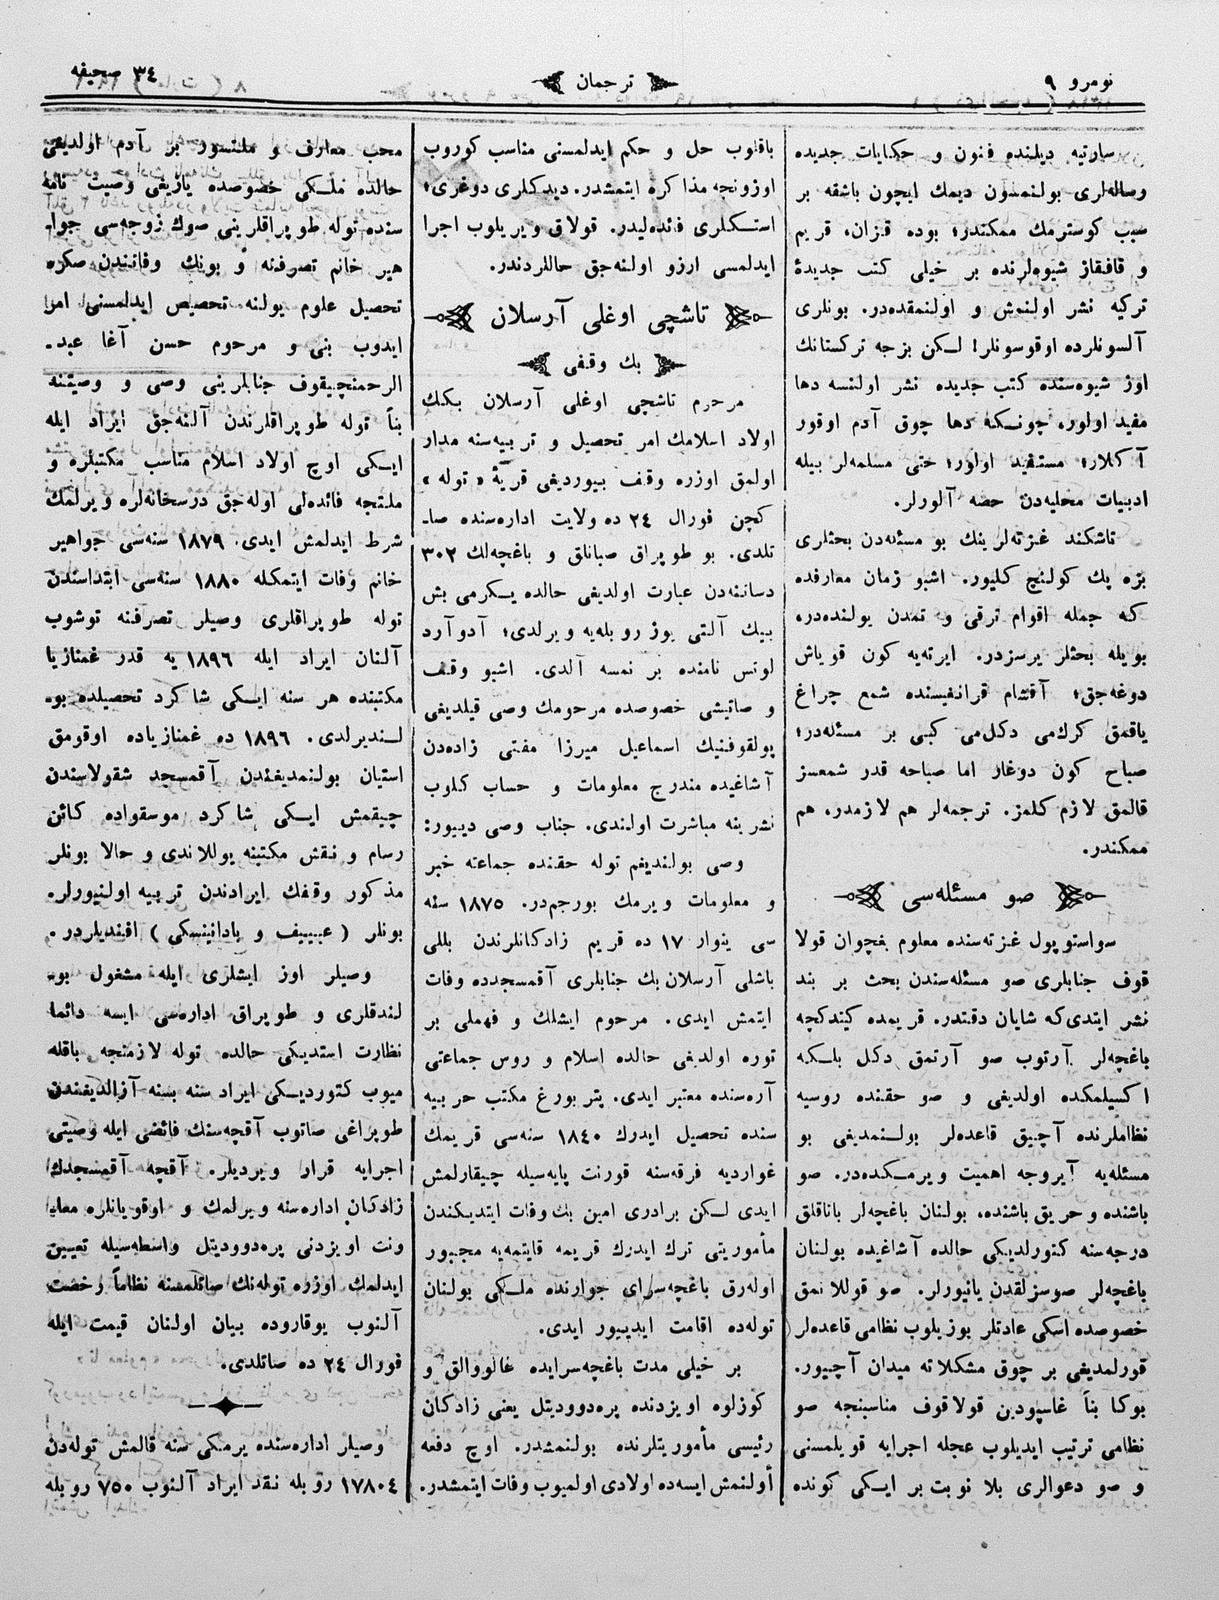 نومرو ٩
ترجمان
٣٤ صحیفه
سارتیه دیلنده فنون و حکایات جدیده
رساله‌لری بولنمسون دیمك ایچون باشقه بر
سبب کوسترمك ممکندر؛ بوده قزان، قریم
و قافقاز شیوه‌لرنده بر خیلی کتب جدیدۀ
ترکیه نشر اولنمش و اولنمقده‌در. بونلری
آلسونلرده اوقوسونلر! لکن بزجه ترکستانك
اوز شیوه‌سنده کتب جدیده نشر اولنسه دها
مفید اولور، چونکه دها چوق آدم اوقور
آکلار؛ مستفید اولور؛ حتی مسلمه‌لر بیله
ادبیات محلیه‌دن حصه آلورلر.
تاشکند غزته‌لرینك بو مسئله‌دن بحثلری
بزه پك کولنچ کلیور. اشبو زمان معارفده
که جمله اقوام ترقی و تمدن یولنده‌در،
بویله بحثلر یرسزدر. ایرته‌یه کون قویاش
دوغه‌جق؛ آقشام قرانغیسنده شمع چراغ
یاقمق کرك‌می دکل‌می کبی بر مسئله‌در؛
صباح کون دوغار اما صباحه قدر شمعسز
قالمق لازم کلمز. ترجمه‌لر هم لازمدر، هم
ممکندر.
صو مسئله‌سی
سواستوپول غزته‌سنده معلوم بغچوان قولا
قوف جنابلری صو مسئله‌سندن بحث بر بند
نشر ایتدی‌که شایان دقتدر. قریمده کیتدکچه
باغچه‌لر آرتوب صو آرتمق دکل بلکه
اکسیلمکده اولدیغی و صو حقنده روسیه
نظاملرنده آچیق قاعده‌لر بولنمدیغی بو
مسئله‌یه آیروجه اهمیت ویرمکده‌در. صو
باشنده و حریق باشنده، بولنان باغچه‌لر باتاقلق
درجه‌سنه کتورلدیکی حالده آشاغیده بولنان
باغچه‌لر صوسزلقدن یانیورلر. صو قوللانمق
خصوصده اسکی عادتلر بوزیلوب نظامی قاعده‌لر
قورلمدیغی بر چوق مشکلاته میدان آچیور.
بوکا بناً غاسپودین قولاقوف مناسبنجه صو
نظامی ترتیب ایدیلوب عجله اجرایه قویلمسنی
و صو دعوالری بلا نوبت بر ایکی کونده
باقلوب حل و حکم ایدلمسنی مناسب کوروب
اوزونجه مذاکره ایتمشدر. دیدکلری دوغری؛
استکلری فائده‌لیدر. قولاق ویریلوب اجرا
ایدلمسی ارزو اولنه‌جق حاللردندر.
تاشچی اوغلی آرسلان
بك وقفی
مرحوم تاشچی اوغلی آرسلان بکنك
اولاد اسلامك امر تحصیل و تربیه‌سنه مدار
اولمق اوزره وقف بیوردیغی قریۀ «توله»
کچن فورال ٢٤ ده ولایت اداره‌سنده صا-
تلدی. بو طوپراق صبانلق و باغچه‌لك ٣٠٢
دساتنه‌دن عبارت اولدیغی حالده یکرمی بش
بیك آلتی یوز روبله‌یه ویرلدی؛ آدوآرد
لوتس نامنده بر نمسه آلدی. اشبو وقف
و صاتیشی خصوصده مرحومك وصی قیلدیغی
پولقوفنیك اسماعیل میرزا مفتی زاده‌دن
آشاغیده مندرج معلومات و حساب کلوب
نشرینه مباشرت اولندی. جناب وصی دیبور:
وصی بولندیغم توله حقنده جماعته خبر
و معلومات ویرمك بورجم‌در. ١٨٧٥ سنه
سی ینوار ١٧ ده قریم زادکانلرندن بللی
باشلی آرسلان بك جنابلری آقمسجدده وفات
ایتمش ایدی. مرحوم ایشلك و فهملی بر
توره اولدیغی حالده اسلام و روس جماعتی
آره‌سنده معتبر ایدی. پتربورغ مکتب حربیه
سنده تحصیل ایدرك ١٨٤٠ سنه‌سی قریمك
غواردیه فرقه‌سنه قورنت پایه‌سیله چیقارلمش
ایدی لکن برادری امین بك وفات ایتدیکندن
مأموریتی ترك ایدرك قریمه قایتمه‌یه مجبور
اوله‌رق باغچه‌سرای جوارنده ملکی بولنان
توله‌ده اقامت ایدییور ایدی.
بر خیلی مدت باغچه‌سرایده غالووالق و
کوزلوه اویزدنده پره‌دوودیتل یعنی زادکان
رئیسی مأموریتلرنده بولنمشدر. اوچ دفعه
أولنمش ایسه‌ده اولادی اولمیوب وفات ایتمشدر.
محب معارف و ملتسور بر آدم اولدیغی
حالده ملکی خصوصده یازیغی وصیت نامه
سنده توله طوپراقلرینی صوك زوجه‌سی جوا-
هیر خانم تصرفنه و بونك وفاتندن صکره
تحصیل علوم یولنه تحصیص ایدلمسنی امر
ایدوب بنی و مرحوم حسن آغا عبد-
الرحمنچیقوف جنابلرینی وصی و وصیتنه
بناً توله طوپراقلرندن آلنه‌جق ایراد ایله
ایکی اوچ اولاد اسلام مناسب مکتبلره و
ملتجه فائده‌لی اوله‌جق درسخانه‌لره ویرلمك
شرط ایدلمش ایدی. ١٨٧٩ سنه‌سی جواهیر
خانم وفات ایتمکله ١٨٨٠ سنه‌سی ابتداسندن
توله طوپراقلری وصیلر تصرفنه توشوب
آلنان ایراد ایله ١٨٩٦ یه قدر غمنازیا
مکتبنده هر سنه ایکی شاکرد تحصیلده بو-
لندیرلدی. ١٨٩٦ ده غمنازیاده اوقومق
استیان بولنمدیغندن آقمسجد شقولاسندن
چیقمش ایکی شاکرد موسقواده کائن
رسام و نقش مکتبنه یوللاندی و حالا بونلر
مذکور وقفك ایرادندن تربیه اولنیورلر.
بونلر (عبییف و یادانینسکی) افندیلردر.
وصیلر اوز ایشلری ایله مشغول بو-
لندقلری و طوپراق اداره‌سی ایسه دائما
نظارت استدیکی حالده توله لازمنجه باقله
میوب کتوردیکی ایراد سنه بسنه آزالدیغندن
طوپراغی صاتوب آقچه‌سنك فائضی ایله وصیتی
اجرایه قرار ویردیلر. آقچه آقمسجدك
زادکان اداره‌سنه ویرلمك و اوقویانلره معا-
ونت اویزدنی پره‌دوودیتل واسطه‌سیله تعیین
ایدلمك اوزره توله‌نك صاتلمسنه نظاماً رخصت
آلنوب یوقاروده بیان اولنان قیمت ایله
فورال ٢٤ ده صاتلدی.
وصیلر اداره‌سنده یرمکی سنه قالمش توله‌دن
١٧٨٠٤ روبله نقد ایراد آلنوب ٧٥٠ روبله